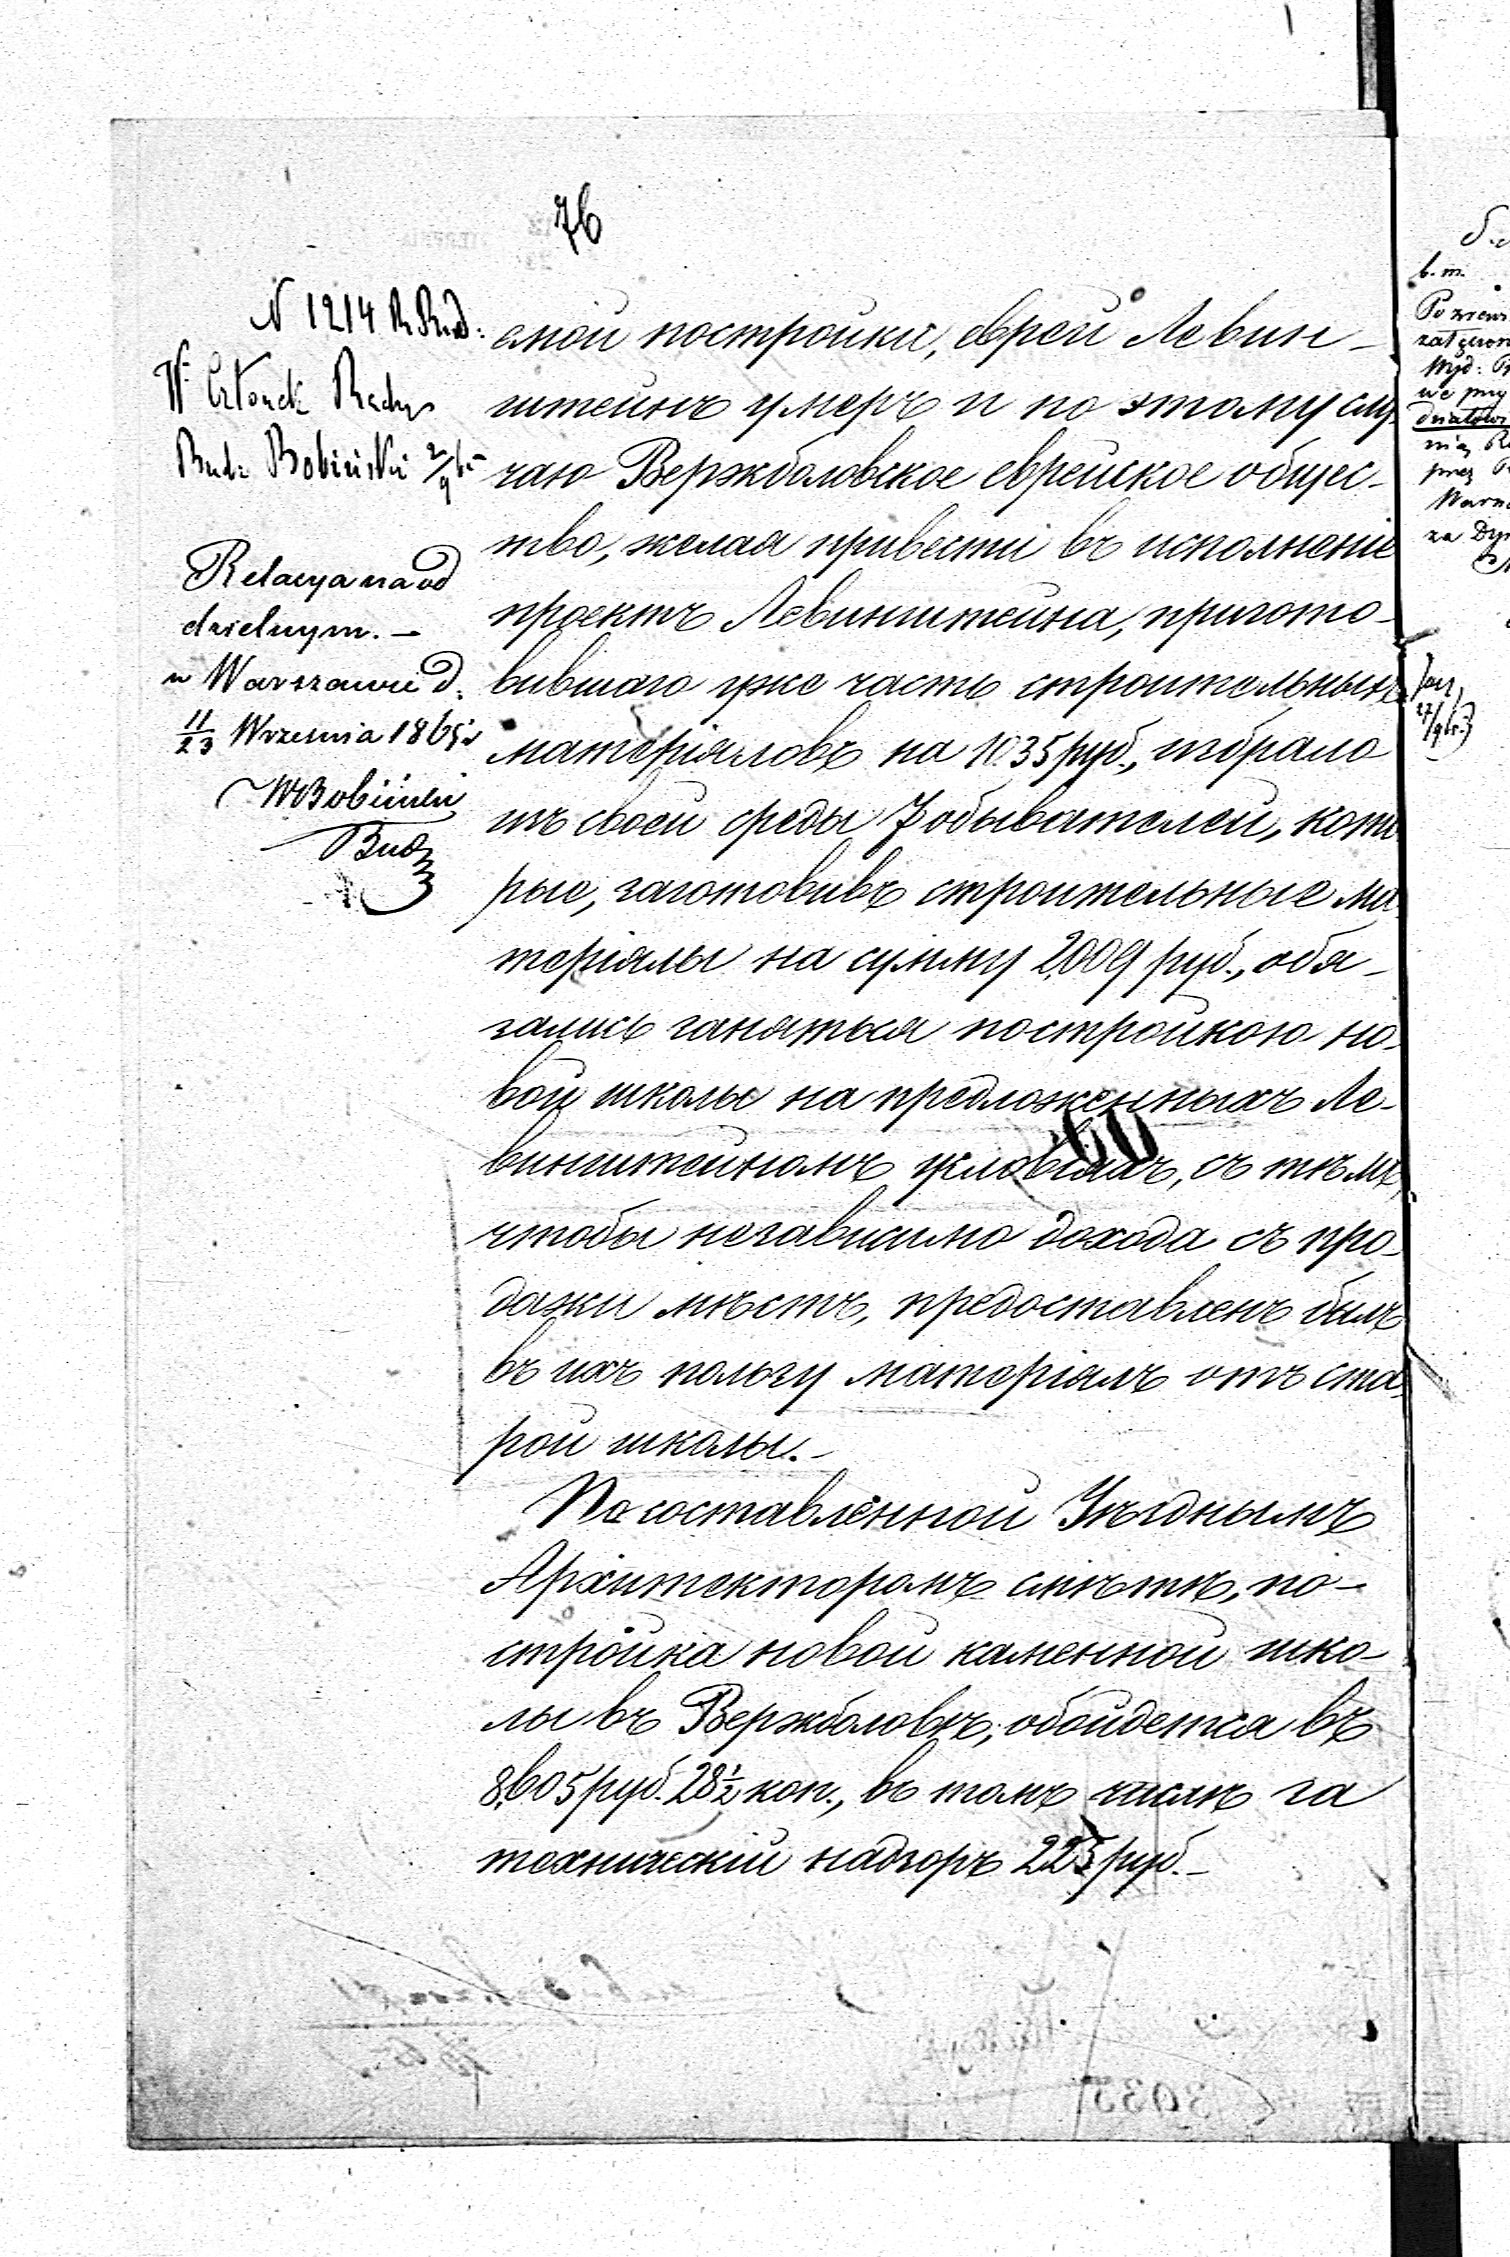 76
N 1214 R Bud:
W Członek Rady
Bud: Bobiński 2/9 65
Relacya na od
dzielnym. —
w Warszawie d.
11/23 Września 1865 r
WBobiński
Bud
смой постройки, еврей Левин-
штейнъ умеръ и по этому слу-
чаю Вержболовское еврейское общес-
тво, желая привести въ исполненіе
проектъ Левинштейна, пригото-
вившаго уже часть строительныхъ
матеріяловъ на 1035 руб., избрало
изъ своей среды 7 обывателей, кото
рые, заготовивъ строительные ма
теріялы на сумму 2,009 руб., обя-
зались заняться постройкою но-
вой школы на предложенныхъ Ле-
винштейномъ условіяхъ, съ тѣмъ,
чтобы независимо дохода съ про-
дажи мѣстъ, предоставленъ былъ
въ ихъ пользу матеріялъ отъ ста
рой школы. —
По составленной Уѣзднымъ
Архитекторомъ смѣтѣ, по-
стройка новой каменной шко-
лы въ Вержболовѣ, обойдется въ
8,605 руб. 28½ коп., въ томъ числѣ за
техническій надзоръ 225 руб. —
b. m.